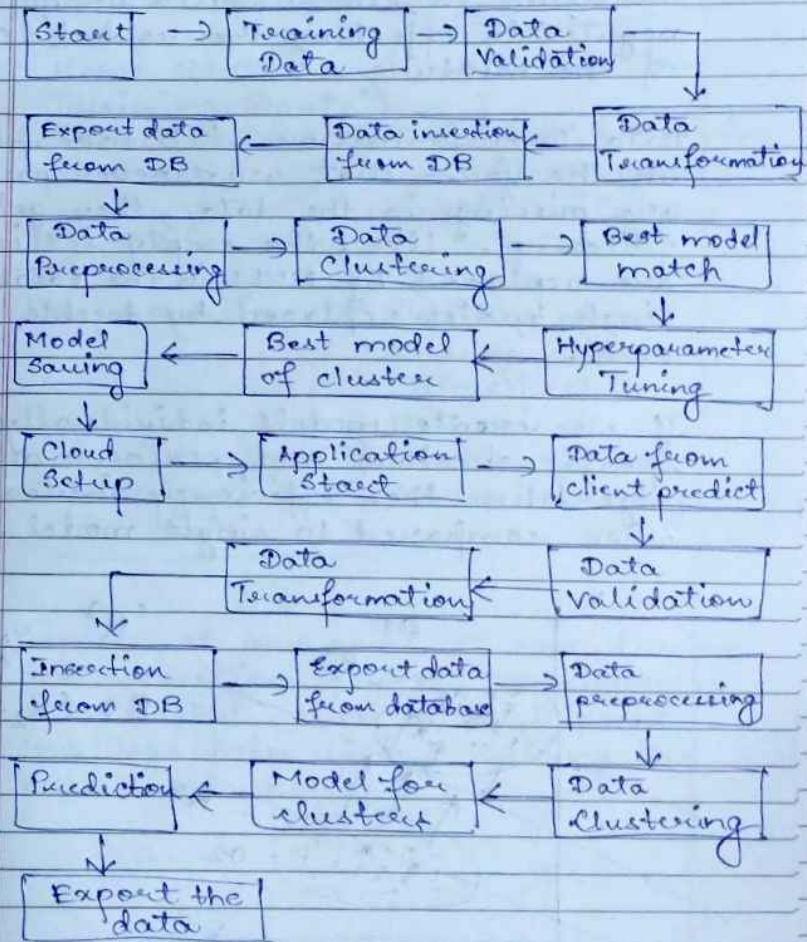 Start
Training
Data
Data
Validation
Data
Transformation
Data insertion
from DB
Export data
from DB
Data
Preprocessing
Data
Clustering
Best model
match
Hyperparameter
Tuning
Best model
of cluster
Model
Saving
Cloud
Setup
Application
Start
Data from
client predict
Data
Validation
Data
Transformation
Insertion
from DB
Export data
from database
Data
preprocessing
Data
Clustering
Model for
clusters
Prediction
Export the
data